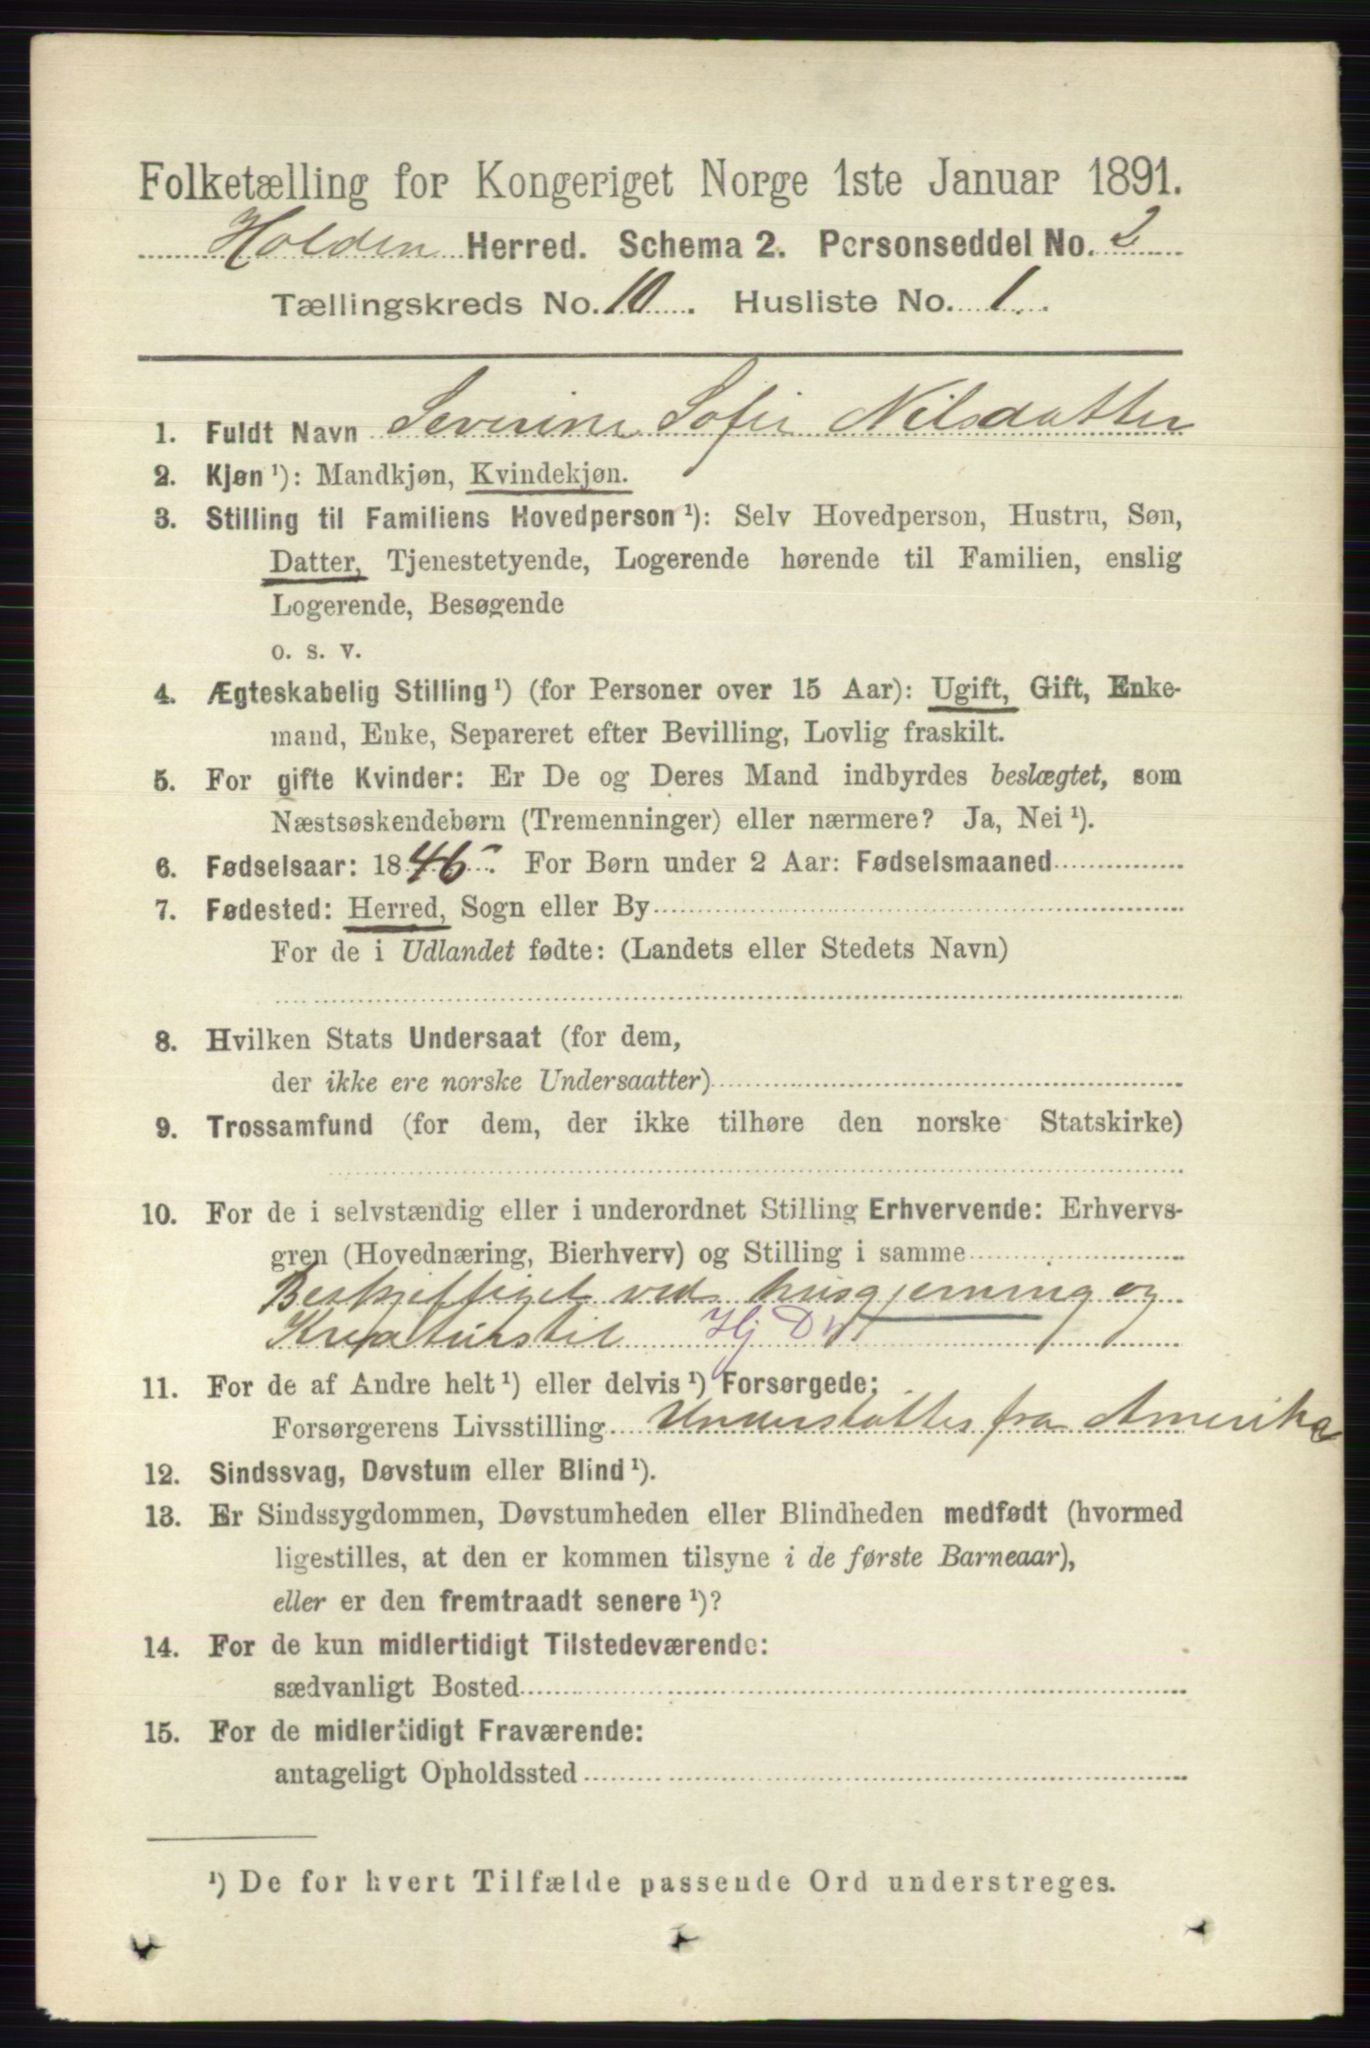 Folketælling for Kongeriget Norge 1ste Januar 1891.
Holden Herred. Schema 2. Personseddel No. 2
Tællingskreds No. 10. Husliste No. 1.
1. Fuldt Navn Severine Sofie Nilsdatter
2. Kjøn ¹): Mandkjøn, Kvindekjøn.
3. Stilling til Familiens Hovedperson ¹): Selv Hovedperson, Hustru, Søn,
Datter, Tjenestetyende, Logerende hørende til Familien, enslig
Logerende, Besøgende
o. s. v.
4. Ægteskabelig Stilling ¹) (for Personer over 15 Aar): Ugift, Gift, Enke-
mand, Enke, Separeret efter Bevilling, Lovlig fraskilt.
5. For gifte Kvinder: Er De og Deres Mand indbyrdes beslægtet, som
Næstsøskendebørn (Tremenninger) eller nærmere? Ja, Nei ¹).
6. Fødselsaar: 1846. For Børn under 2 Aar: Fødselsmaaned
7. Fødested: Herred, Sogn eller By
For de i Udlandet fødte: (Landets eller Stedets Navn)
8. Hvilken Stats Undersaat (for dem,
der ikke ere norske Undersaatter)
9. Trossamfund (for dem, der ikke tilhøre den norske Statskirke)
10. For de i selvstændig eller i underordnet Stilling Erhvervende: Erhvervs-
gren (Hovednæring, Bierhverv) og Stilling i samme
Beskjeftiget ved husgjerning og
Kreaturstil Hj
11. For de af Andre helt ¹) eller delvis ¹) Forsørgede:
Forsørgerens Livsstilling Understøttes fra Amerika
12. Sindssvag, Døvstum eller Blind ¹).
13. Er Sindssygdommen, Døvstumheden eller Blindheden medfødt (hvormed
ligestilles, at den er kommen tilsyne i de første Barneaar),
eller er den fremtraadt senere ¹)?
14. For de kun midlertidigt Tilstedeværende:
sædvanligt Bosted
15. For de midlertidigt Fraværende:
antageligt Opholdssted
¹) De for hvert Tilfælde passende Ord understreges.